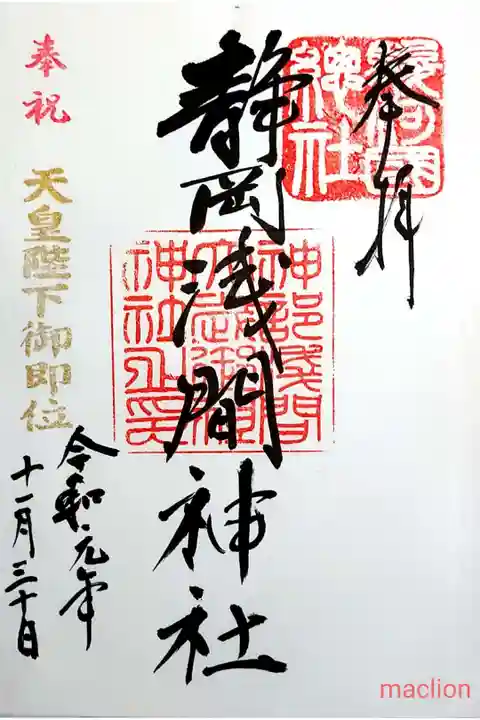 奉拝
駿河國
總社
静岡浅間神社
神部浅間
大歳御祖
神社之印
奉祝 天皇陛下御即位
令和元年
十一月三十日
maclion